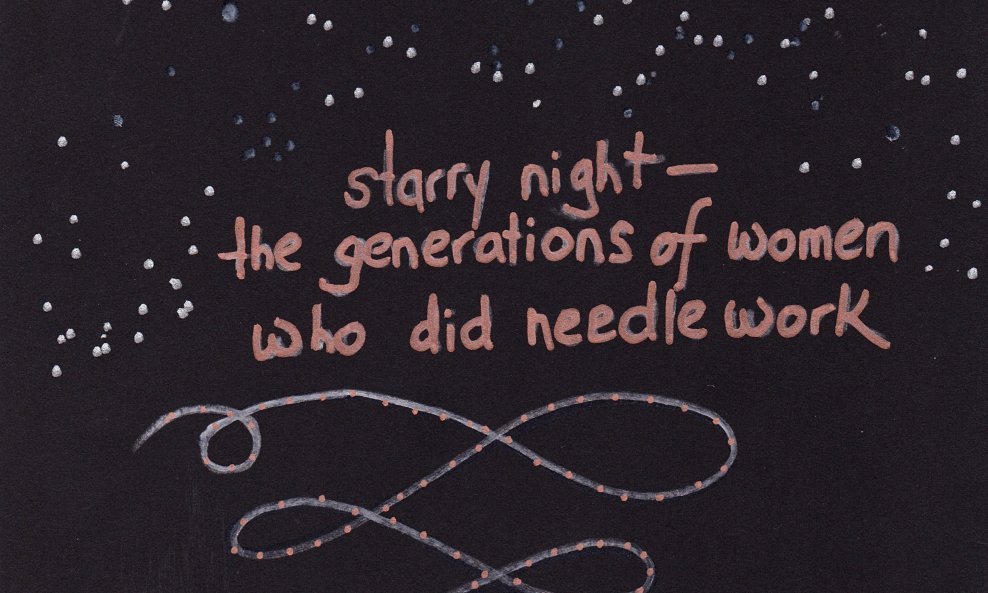 starry night—
the generations of women
who did needlework